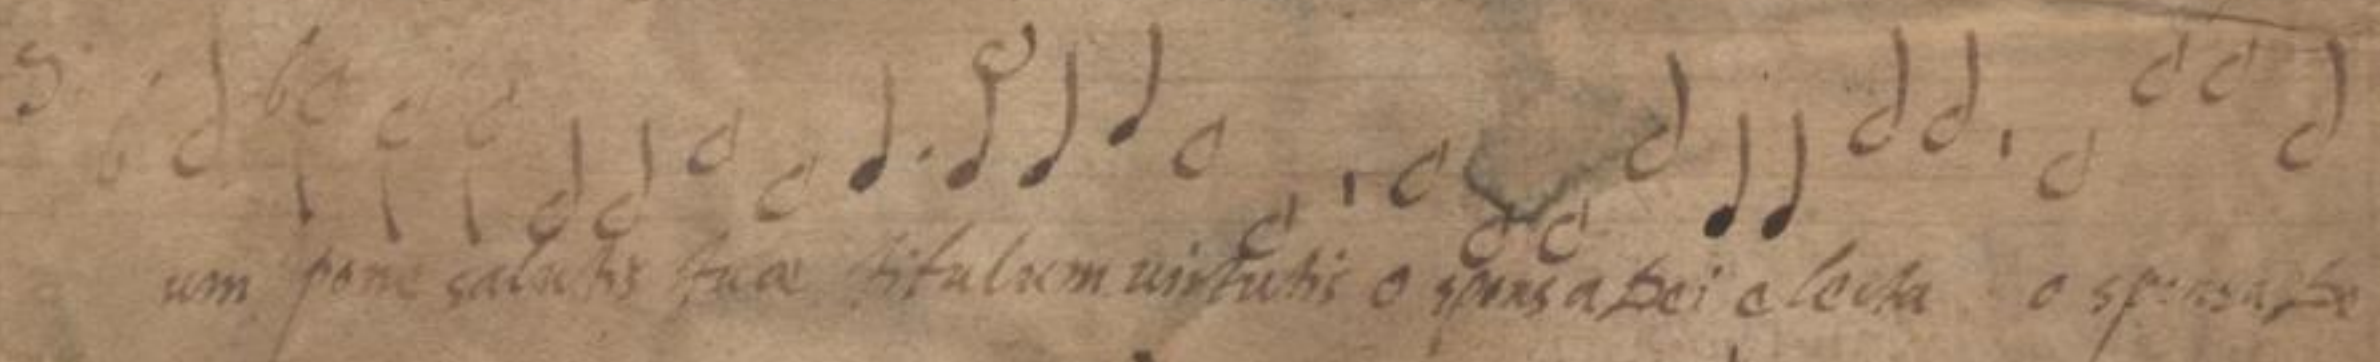 um pone salutis tuæ titulum virtutis o sponsa Dei electa o sponsa De